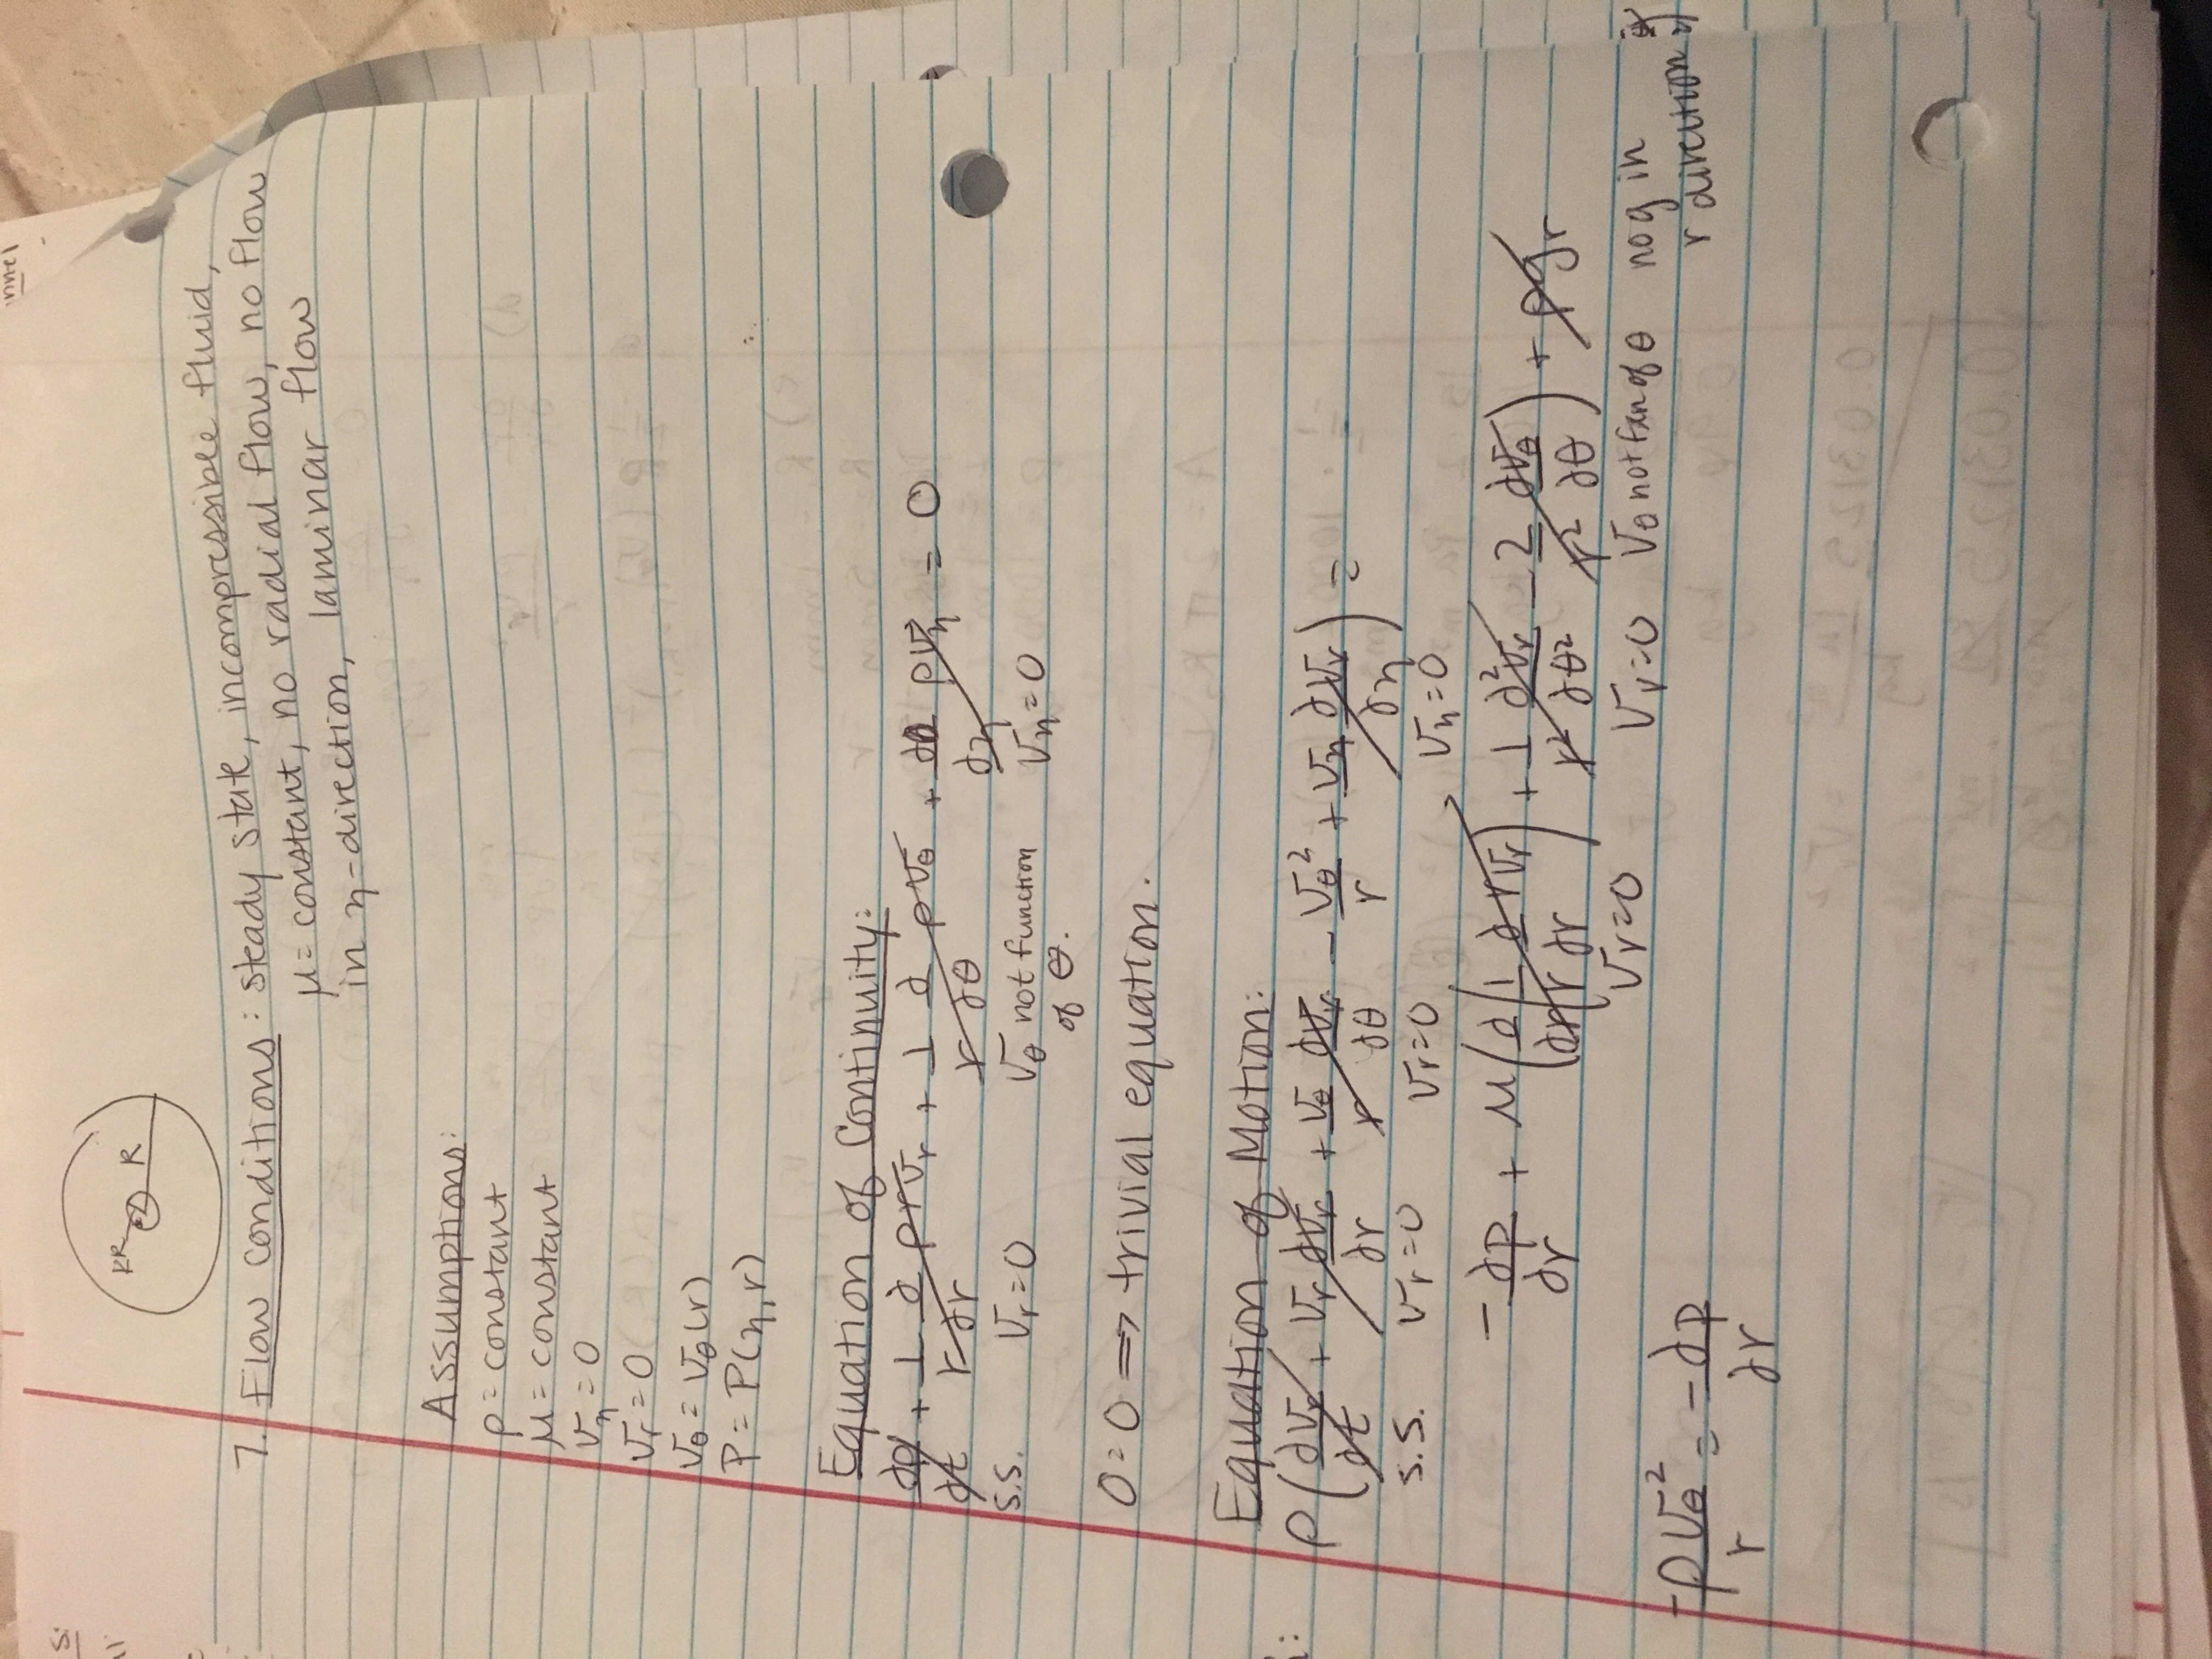 nnel
S:
KR R
7. Flow Conditions: steady state, incompressible fluid,
μ = constant, no radial flow, no flow
in η-direction, laminar flow
Assumptions:
ρ = constant
μ = constant
v_η = 0
v_r = 0
v_θ = v_θ(r)
P = P(η, r)
Equation of Continuity:
∂ρ/∂t + 1/r ∂/∂r ρrv_r + 1/r ∂/∂θ ρv_θ + ∂/∂η ρv_η = 0
s.s. v_r = 0 v_θ not function v_η = 0
of θ.
0 = 0 ⇒ trivial equation.
Equation of Motion:
ρ(∂v_r/∂t + v_r ∂v_r/∂r + v_θ/r ∂v_r/∂θ - v_θ²/r + v_η ∂v_r/∂η) =
s.s. v_r = 0 v_r = 0 v_η = 0
-∂p/∂r + μ(∂/∂r(1/r ∂/∂r rv_r) + 1/r² ∂²v_r/∂θ² - 2/r² ∂v_θ/∂θ) + ρg_r
v_r = 0 v_r = 0 v_θ not fxn of θ no g in
r direction
-ρv_θ²/r = -∂p/∂r